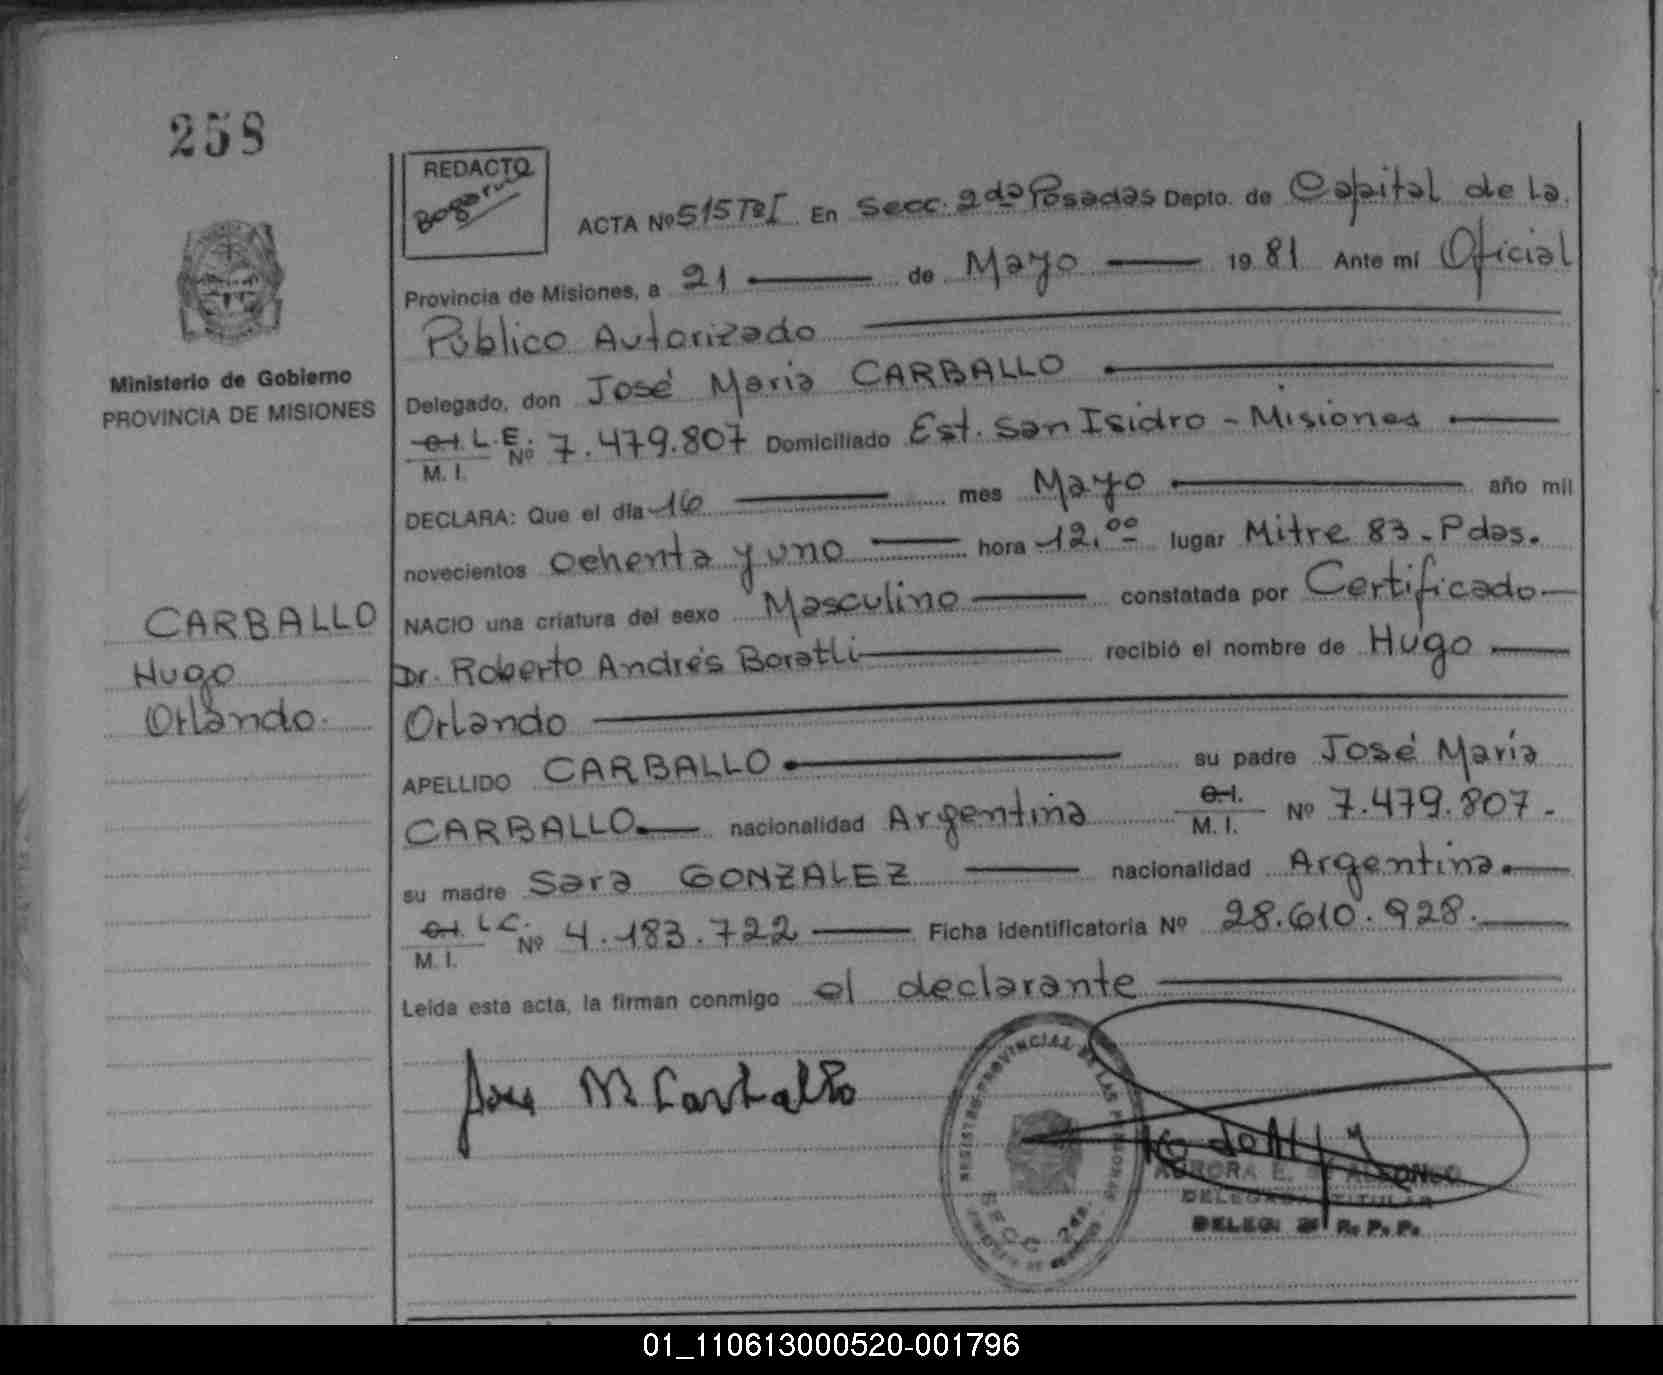 258
REDACTO
ACTA Nº 515 TºI En Secc. 2da Posadas Depto. de Capital de la
Provincia de Misiones, a 21 de Mayo 1981 Ante mí Oficial
Público Autorizado
Ministerio de Gobierno
PROVINCIA DE MISIONES
Delegado, don José Maria CARBALLO
C.I. L.E. M.I. Nº 7.479.807 Domiciliado Est. San Isidro - Misiones
DECLARA: Que el día 16 mes Mayo año mil
novecientos Ochenta y uno hora 12,00 lugar Mitre 83 - Pdas.
NACIO una criatura del sexo Masculino constatada por Certificado
Dr. Roberto Andrés Boratti recibió el nombre de Hugo
Orlando
CARBALLO
Hugo
Orlando.
APELLIDO CARBALLO su padre José María
CARBALLO nacionalidad Argentina C.I. M.I. Nº 7.479.807.
su madre Sara GONZALEZ nacionalidad Argentina.
C.I. L.C. M.I. Nº 4.183.722 Ficha identificatoria Nº 28.610.928.
Leída esta acta, la firman conmigo el declarante
Jose M Carballo
REGISTRO PROVINCIAL DE LAS PERSONAS
SECC. 2da.
AURORA E. DE ALFONSO
DELEGADA TITULAR
DELEG. R. P. P.
01_110613000520-001796